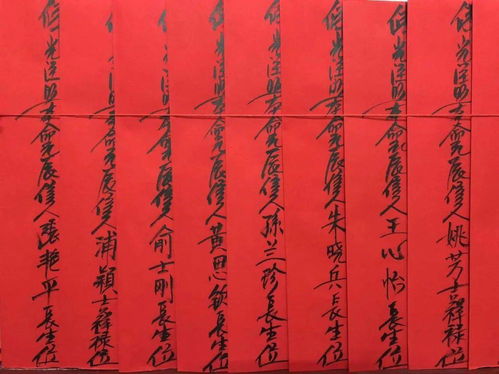 佛光注照本命元辰人姚芳士禄位
佛光注照本命元辰人王心怡長生位
佛光注照本命元辰人朱晓兵長生位
佛光注照本命元辰人孫兰珍長生位
佛光注照本命元辰人黄思敏長生位
佛光注照本命元辰人俞士刚長生位
佛光注照本命元辰人浦颖士禄位
佛光注照本命元辰人張艳平長生位